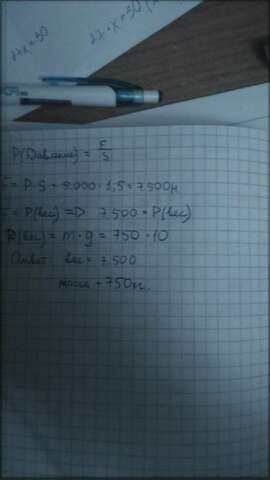 27x=50
27·x=50
P(Давление) = F/S
F = P·S = 5.000 · 1,5 = 7.500н
F = P(вес) =D 7.500 = P(вес)
P(вес) = m·g = 750·10
Ответ вес = 7.500
масса - 750кг.